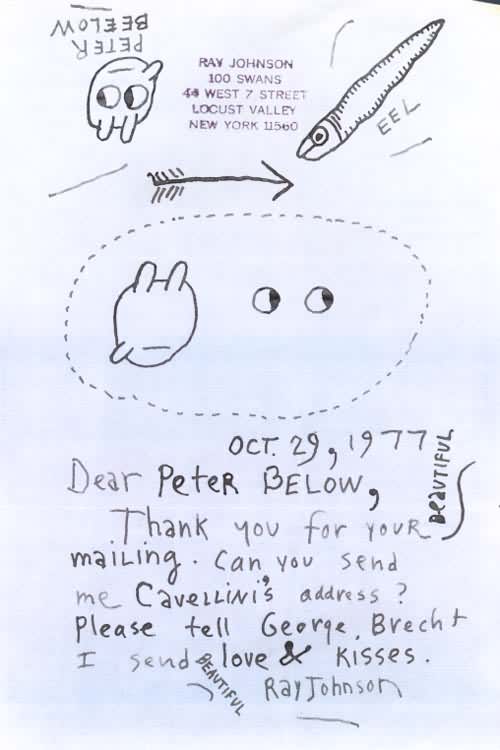 PETER
BEELOW
RAY JOHNSON
100 SWANS
44 WEST 7 STREET
LOCUST VALLEY
NEW YORK 11560
EEL
OCT. 29, 1977
Dear Peter BELOW,
Thank you for your BEAUTIFUL
mailing. Can you send
me Cavellini's address?
Please tell George Brecht
I send BEAUTIFUL love & kisses.
Ray Johnson